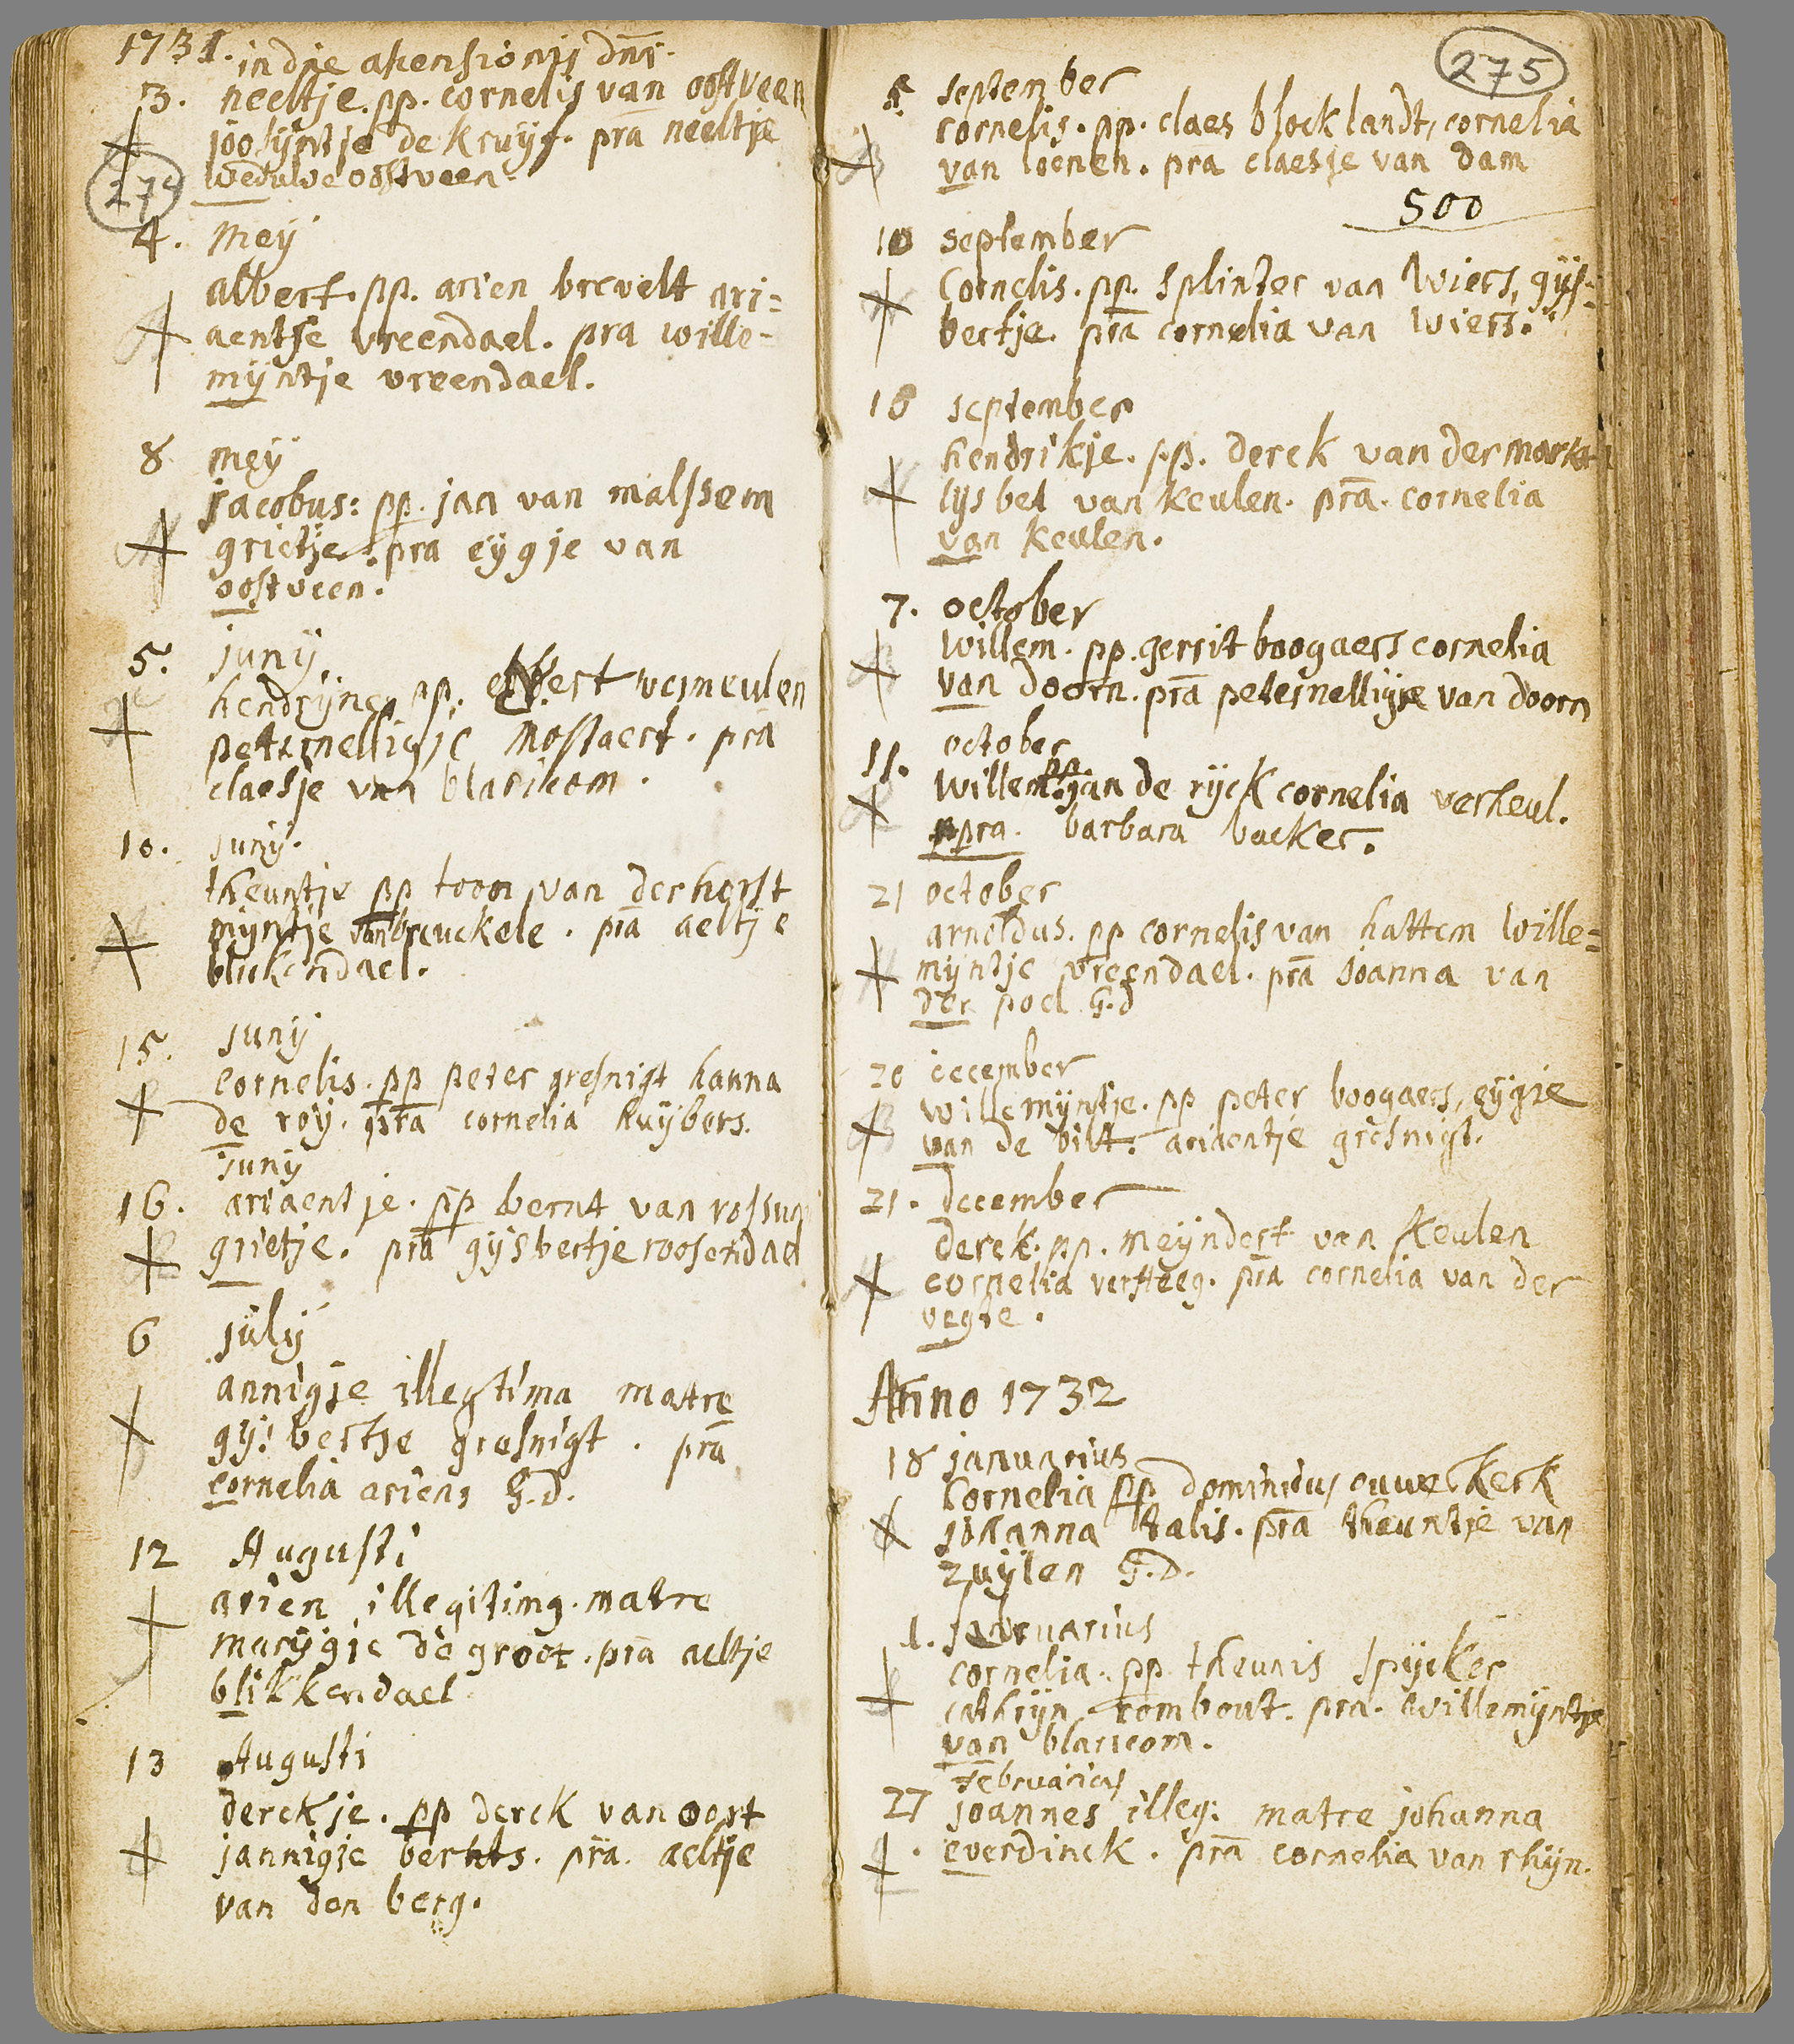 1731. in die ascensionis dni.
3. neeltje. pp. cornelis van oostveen
joosijntje de kruijf. pra neeltje
weduwe oostveen.
274
4. meij
albert. pp. arien brevelt ari=
aentje vreendael. pra wille-
mijntje vreendael.
8 meij
jacobus: pp. jan van malssem
grietje. pra eijgje van
oostveen.
5. junij
hendrijne. pp. elbert vermeulen
peternelligje mostaert. pra
claesje van blaricom.
10. junij.
theuntje pp toon van der horst
mijntje van breuckele. pra aeltje
blickendael.
15. junij
cornelis. pp peter gresnigt hanna
de roij. pra cornelia kuijbers.
junij
16. ariaentje. pp bernt van rossum
grietje. pra gijsbertje roosendael
6 julij
annigje illegtima matre
gijsbertje gresnigt. pra
cornelia ariens G.D.
12 Augusti
arien illegitimg. matre
marijgje de groot. pra aeltje
blikkendael
13 Augusti
derckje. pp derck van oort
jannigje bernts. pra. aeltje
van den berg.
275
5 september
cornelis. pp. claes blocklandt, cornelia
van loenen. pra claesje van dam
500
10 september
Cornelis. pp. splinter van wiers, gijs=
bertje. pra cornelia van wiers.
18 september
hendrikje. pp. derck van der mark
lijsbet van keulen. pra. cornelia
van keulen.
7. october
willem. pp. gerrit boogaers cornelia
van doorn. pra peternelligje van doorn
11. october
willem. pp. jan de rijck cornelia verheul.
pra. barbara backer.
21 october
arnoldus. pp cornelis van hattem wille=
mijntje vreendael. pra joanna van
der poel G.d
20 december
willemijntje. pp peter boogaers, eijgie
van de bilt. ariaentje gresnigt.
21. december
derck. pp. meijndert van keulen
cornelia versteeg. pra cornelia van der
vegte.
Anno 1732
18 januarius
Cornelia pp dominicus ouwerkerk
johanna talis. pra theuntje van
zuijlen G.D.
1. februarius
cornelia. pp theunis spijcker
cathrijn rombout. pra. willemijntje
van blaricom.
februarius
27 joannes illeg: matre johanna
everdinck. pra cornelia van rhijn.